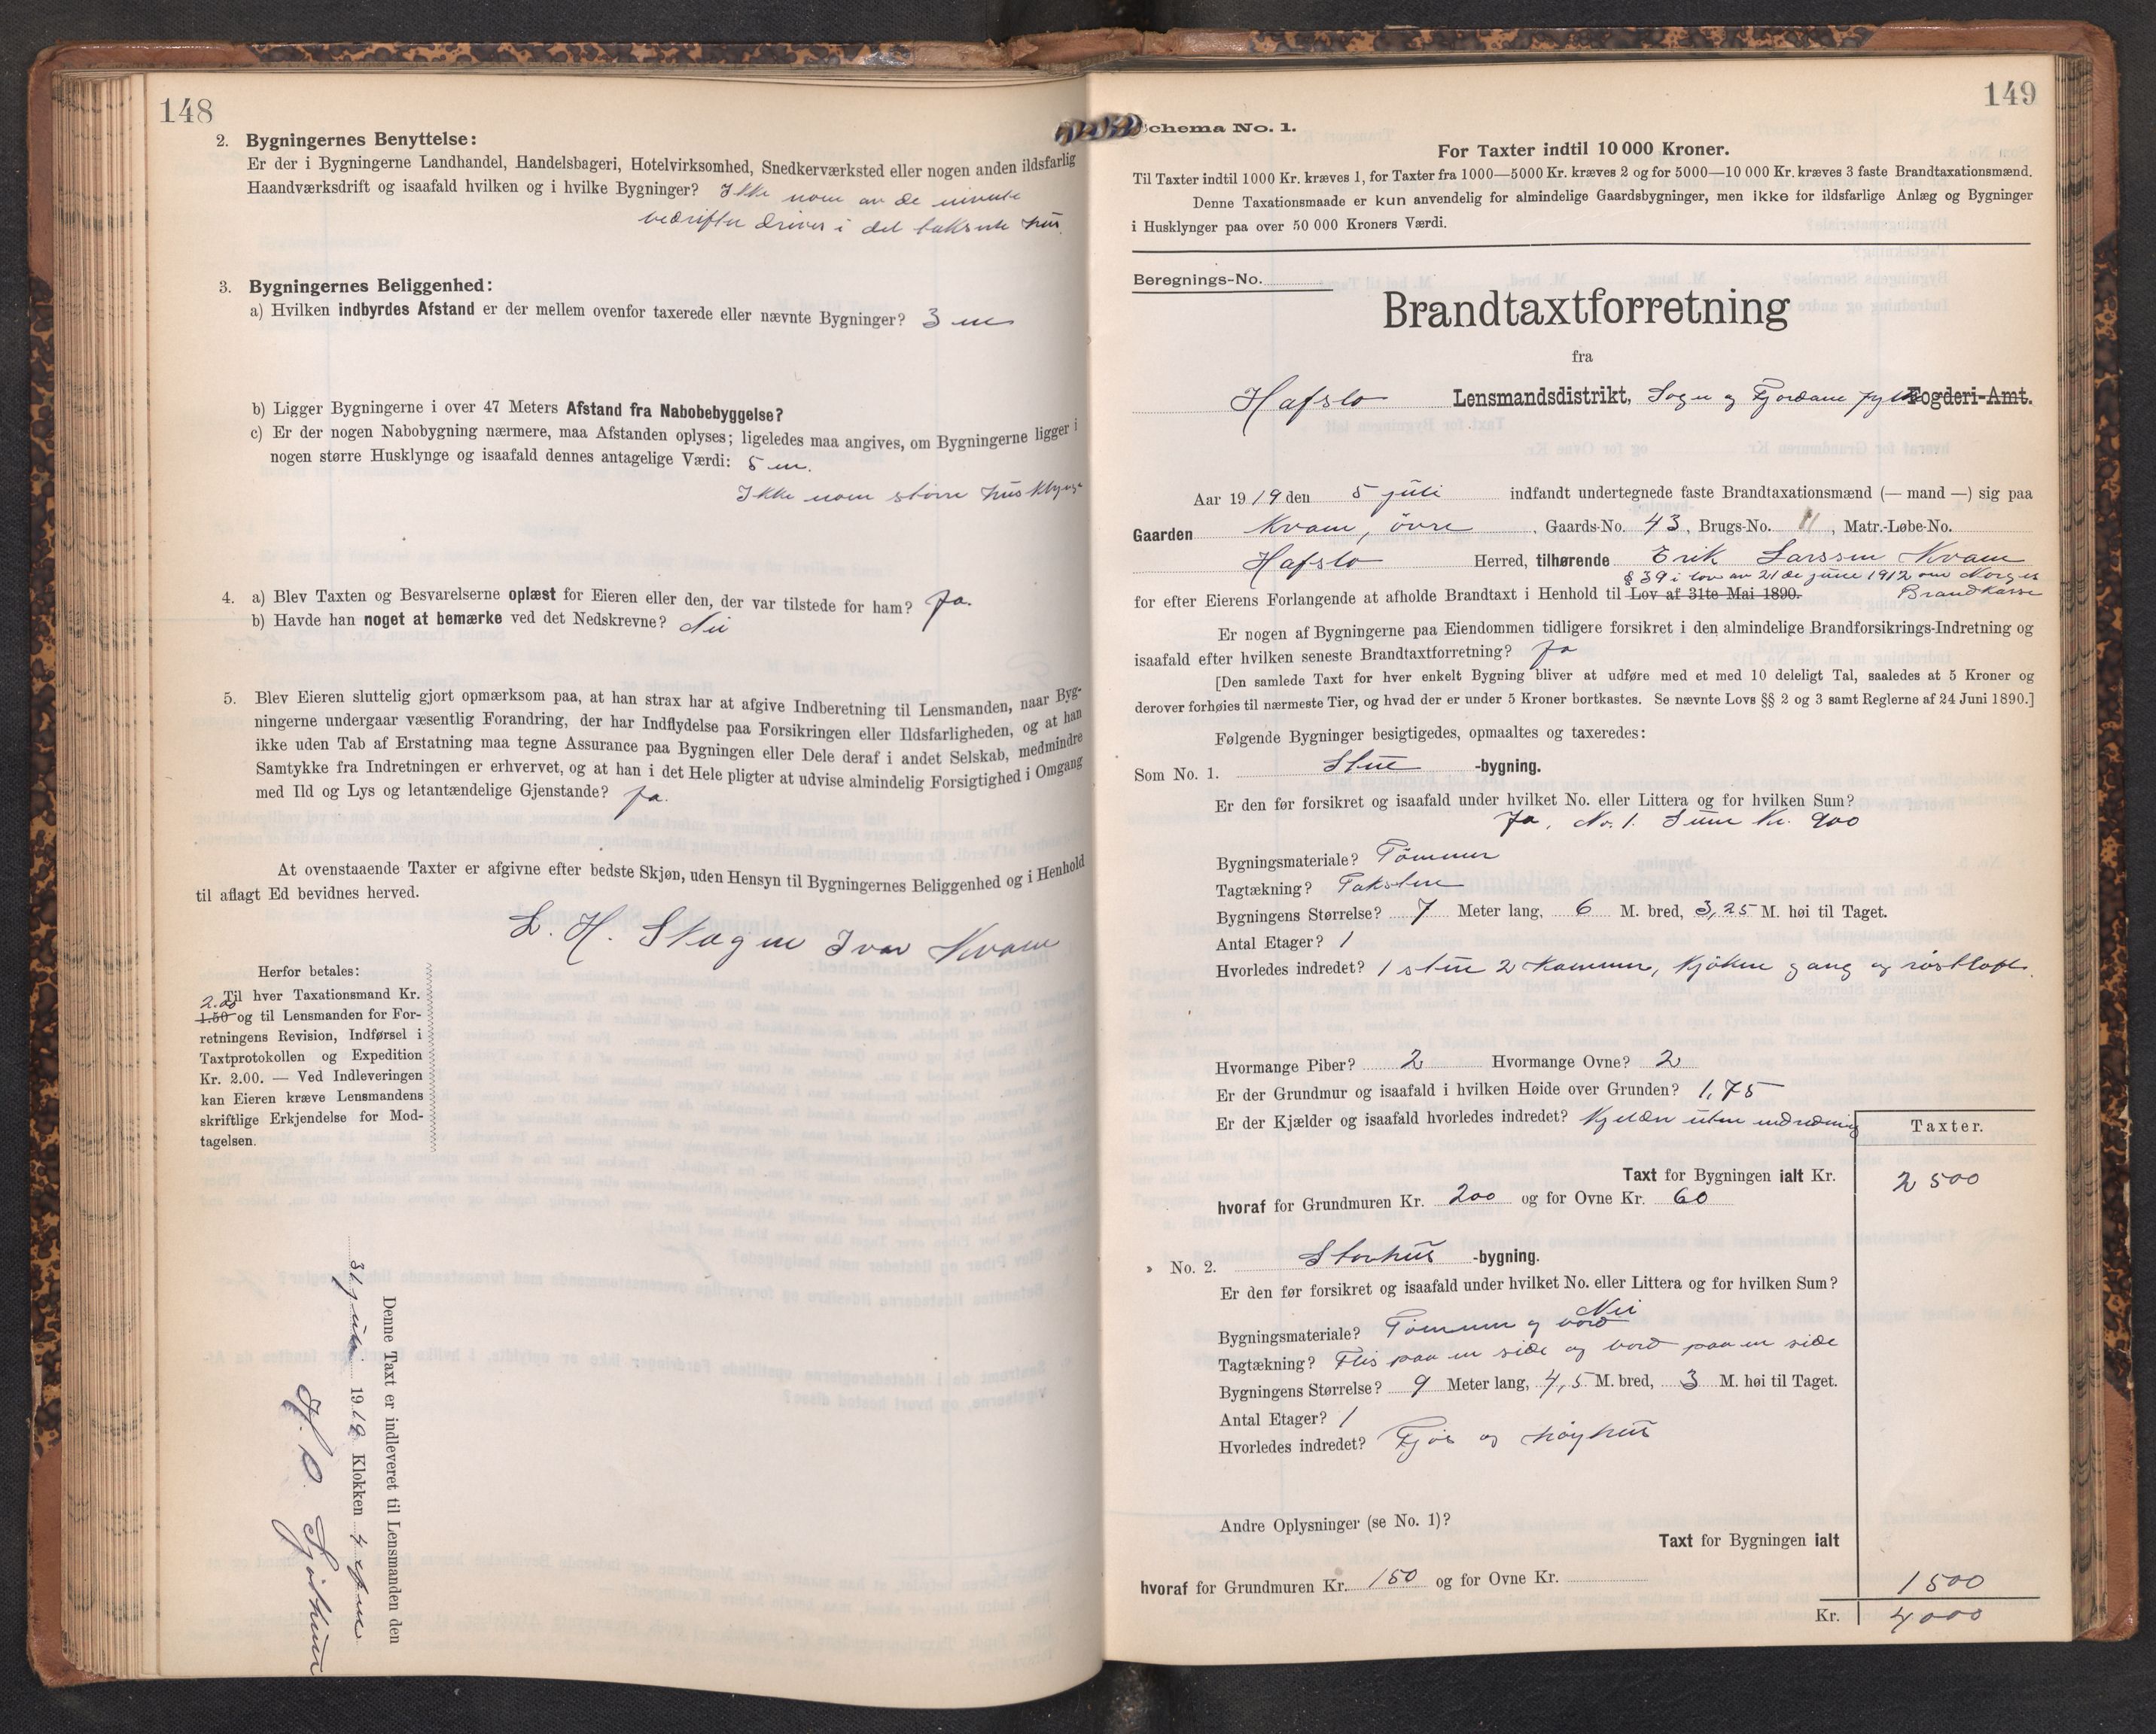 148
2. Bygningernes Benyttelse:
Er der i Bygningerne Landhandel, Handelsbageri, Hotelvirksomhed, Snedkerværksted eller nogen anden ildsfarlig
Haandværksdrift og isaafald hvilken og i hvilke Bygninger? Ikke noen av de nevnte
bedrifter drives i det takserte hus.
3. Bygningernes Beliggenhed:
a) Hvilken indbyrdes Afstand er der mellem ovenfor taxerede eller nævnte Bygninger? 3 m
b) Ligger Bygningerne i over 47 Meters Afstand fra Nabobebyggelse?
c) Er der nogen Nabobygning nærmere, maa Afstanden oplyses; ligeledes maa angives, om Bygningerne ligger i
nogen større Husklynge og isaafald dennes antagelige Værdi: 5 m.
Ikke noen større husklynge
4. a) Blev Taxten og Besvarelserne oplæst for Eieren eller den, der var tilstede for ham? Ja.
b) Havde han noget at bemærke ved det Nedskrevne? Nei
5. Blev Eieren sluttelig gjort opmærksom paa, at han strax har at afgive Indberetning til Lensmanden, naar Byg-
ningerne undergaar væsentlig Forandring, der har Indflydelse paa Forsikringen eller Ildsfarligheden, og at han
ikke uden Tab af Erstatning maa tegne Assurance paa Bygningen eller Dele deraf i andet Selskab, medmindre
Samtykke fra Indretningen er erhvervet, og at han i det Hele pligter at udvise almindelig Forsigtighed i Omgang
med Ild og Lys og letantændelige Gjenstande? Ja.
At ovenstaaende Taxter er afgivne efter bedste Skjøn, uden Hensyn til Bygningernes Beliggenhed og i Henhold
til aflagt Ed bevidnes herved.
L. H. Skagen Ivar Kvam
Herfor betales:
Til hver Taxationsmand Kr.
2.00
1.50 og til Lensmanden for For-
retningens Revision, Indførsel i
Taxtprotokollen og Expedition
Kr. 2.00. — Ved Indleveringen
kan Eieren kræve Lensmandens
skriftlige Erkjendelse for Mod-
tagelsen.
Denne Taxt er indleveret til Lensmanden den
31 juli 1919 Klokken 4 efm.
149
Schema No. 1.
For Taxter indtil 10 000 Kroner.
Til Taxter indtil 1000 Kr. kræves 1, for Taxter fra 1000—5000 Kr. kræves 2 og for 5000—10 000 Kr. kræves 3 faste Brandtaxationsmænd.
Denne Taxationsmaade er kun anvendelig for almindelige Gaardsbygninger, men ikke for ildsfarlige Anlæg og Bygninger
i Husklynger paa over 50 000 Kroners Værdi.
Beregnings-No.
Brandtaxtforretning
fra
Hafslo Lensmandsdistrikt, Sogn og Fjordane fylke Fogderi-Amt.
Aar 1919 den 5 juli indfandt undertegnede faste Brandtaxationsmænd (— mand —) sig paa
Gaarden Kvam, övre, Gaards-No. 43, Brugs-No. 11, Matr.-Løbe-No.
Hafslo Herred, tilhørende Erik Larssen Kvam
§ 39 i lov av 21de june 1912 om Norges
for efter Eierens Forlangende at afholde Brandtaxt i Henhold til Lov af 31te Mai 1890. Brandkasse
Er nogen af Bygningerne paa Eiendommen tidligere forsikret i den almindelige Brandforsikrings-Indretning og
isaafald efter hvilken seneste Brandtaxtforretning? Ja
[Den samlede Taxt for hver enkelt Bygning bliver at udføre med et med 10 deleligt Tal, saaledes at 5 Kroner og
derover forhøies til nærmeste Tier, og hvad der er under 5 Kroner bortkastes. Se nævnte Lovs §§ 2 og 3 samt Reglerne af 24 Juni 1890.]
Følgende Bygninger besigtigedes, opmaaltes og taxeredes:
Som No. 1. Stue -bygning.
Er den før forsikret og isaafald under hvilket No. eller Littera og for hvilken Sum?
Ja, No. 1. Sum Kr. 900
Bygningsmateriale? Tömmer
Tagtækning? Taksten
Bygningens Størrelse? 7 Meter lang, 6 M. bred, 3,25 M. høi til Taget.
Antal Etager? 1
Hvorledes indredet? 1 stue 2 kammer, kjöken gang og röstloft.
Hvormange Piber? 2 Hvormange Ovne? 2
Er der Grundmur og isaafald i hvilken Høide over Grunden? 1,75
Er der Kjælder og isaafald hvorledes indredet? Kjelder uten indredning
Taxter.
Taxt for Bygningen ialt Kr. 2500
hvoraf for Grundmuren Kr. 200 og for Ovne Kr. 60
» No. 2. Storhus -bygning.
Er den før forsikret og isaafald under hvilket No. eller Littera og for hvilken Sum?
Nei
Bygningsmateriale? Tömmer og bord
Tagtækning? Flis paa en side og bord paa en side
Bygningens Størrelse? 9 Meter lang, 4,5 M. bred, 3 M. høi til Taget.
Antal Etager? 1
Hvorledes indredet? Fjös og höyhus
Andre Oplysninger (se No. 1)?
Taxt for Bygningen ialt
hvoraf for Grundmuren Kr. 150 og for Ovne Kr. 1500
Kr. 4000